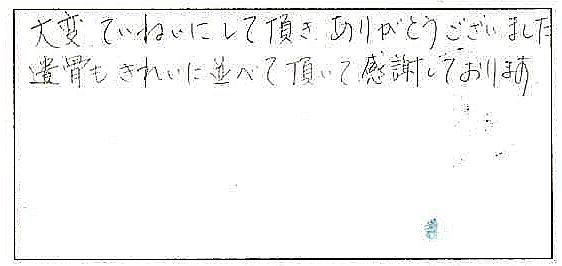 大変ていねいにして頂き ありがとうございました
遺骨もきれいに並べて頂いて感謝しております